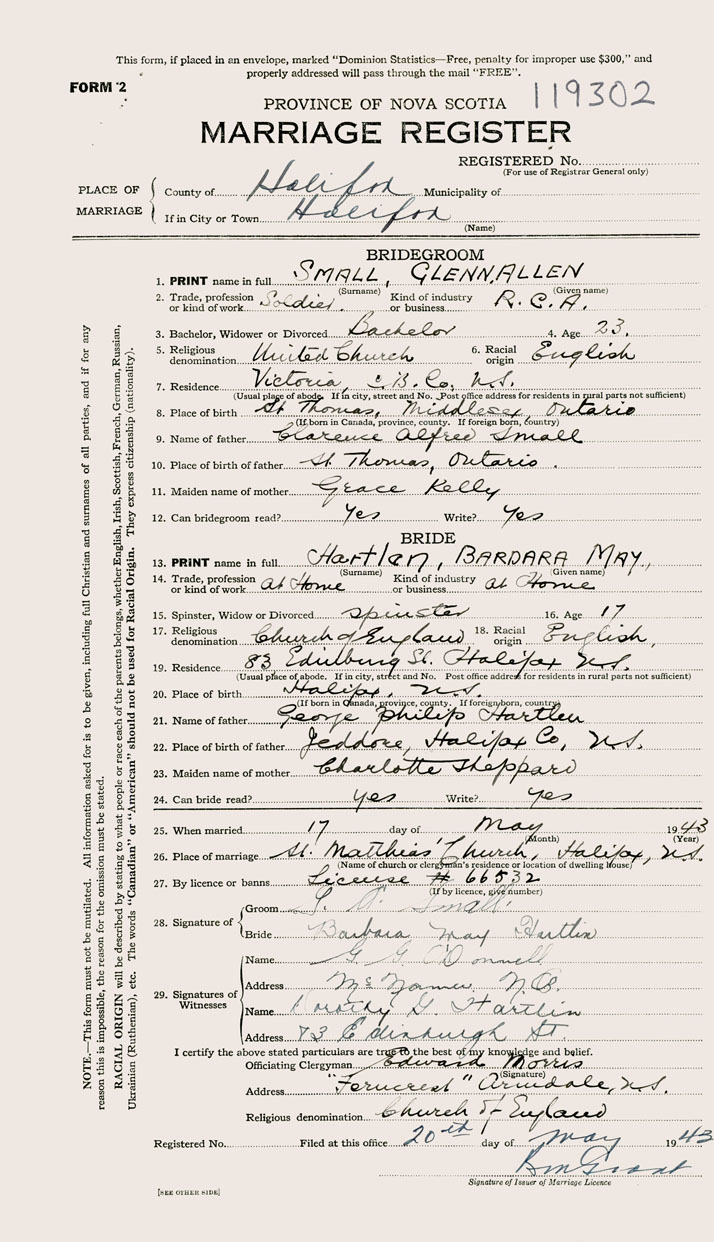 This form, if placed in an envelope, marked "Dominion Statistics—Free, penalty for improper use $300," and
properly addressed will pass through the mail "FREE".
FORM 2
119302
PROVINCE OF NOVA SCOTIA
MARRIAGE REGISTER
REGISTERED No.
(For use of Registrar General only)
PLACE OF MARRIAGE
County of Halifax Municipality of
If in City or Town Halifax
(Name)
BRIDEGROOM
1. PRINT name in full SMALL, GLENN, ALLEN
(Surname) (Given name)
2. Trade, profession or kind of work Soldier. Kind of industry or business R.C.A.
3. Bachelor, Widower or Divorced Bachelor 4. Age 23.
5. Religious denomination United Church 6. Racial origin English
7. Residence Victoria, B. Co, N.S.
(Usual place of abode. If in city, street and No. Post office address for residents in rural parts not sufficient)
8. Place of birth St Thomas, Middlesex, Ontario
(If born in Canada, province, county. If foreign born, country)
9. Name of father Clarence Alfred Small
10. Place of birth of father St. Thomas, Ontario.
11. Maiden name of mother Grace Kelly
12. Can bridegroom read? Yes Write? Yes
BRIDE
13. PRINT name in full Hartlen, BARDARA MAY,
(Surname) (Given name)
14. Trade, profession or kind of work at Home Kind of industry or business at Home
15. Spinster, Widow or Divorced spinster 16. Age 17
17. Religious denomination Church of England 18. Racial origin English,
19. Residence 83 Edinburg St. Halifax N.S.
(Usual place of abode. If in city, street and No. Post office address for residents in rural parts not sufficient)
20. Place of birth Halifax, N.S.
(If born in Canada, province, county. If foreign born, country)
21. Name of father George Philip Hartlen
22. Place of birth of father Jeddore, Halifax Co, N.S.
23. Maiden name of mother Charlotte Sheppard
24. Can bride read? yes Write? yes
25. When married 17 day of May 1943
(Month) (Year)
26. Place of marriage St. Matthias' Church, Halifax, N.S.
(Name of church or clergyman's residence or location of dwelling house)
27. By licence or banns License # 66532
(If by licence, give number)
28. Signature of
Groom Small.
Bride Barbara May Hartlin
29. Signatures of Witnesses
Name G. G. O'Donnell
Address N.B.
Name Dorothy G. Hartlin
Address 73 Edinburgh St.
I certify the above stated particulars are true to the best of my knowledge and belief.
Officiating Clergyman Edward Morris
(Signature)
Address "Ferncrest" Armdale, N.S.
Religious denomination Church of England
Registered No. Filed at this office 20th day of May 1943
Signature of Issuer of Marriage Licence
[SEE OTHER SIDE]
NOTE.—This form must not be mutilated. All information asked for is to be given, including full Christian and surnames of all parties, and if for any
reason this is impossible, the reason for the omission must be stated.
RACIAL ORIGIN will be described by stating to what people or race each of the parents belongs, whether English, Irish, Scottish, French, German, Russian,
Ukrainian (Ruthenian), etc. The words "Canadian" or "American" should not be used for Racial Origin. They express citizenship (nationality).